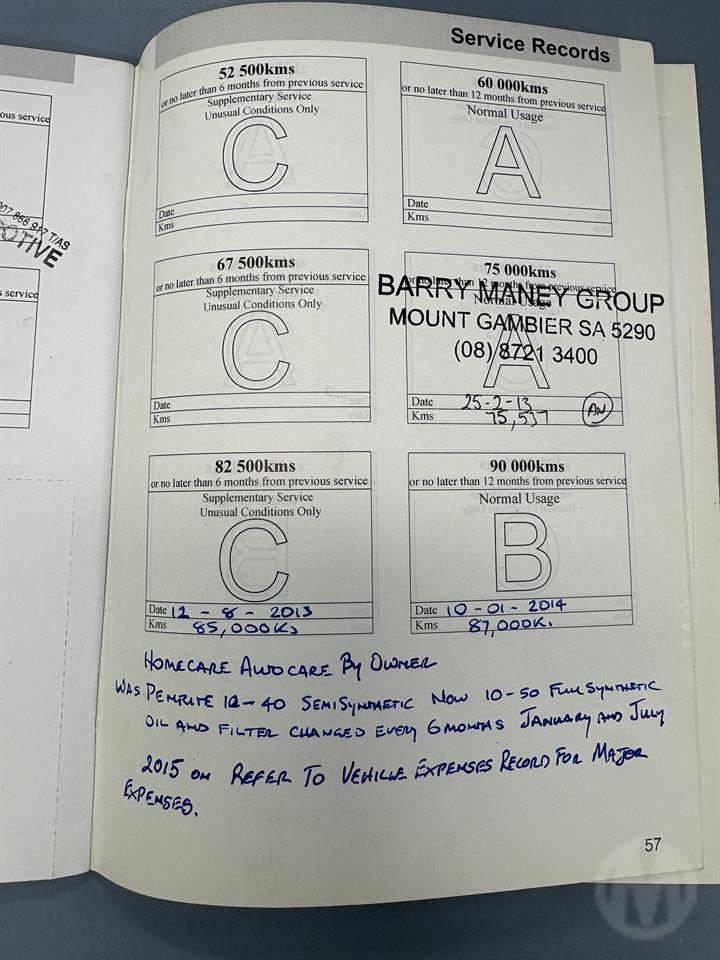 Service Records
ous service
907 866 917 T/AS
OTIVE
s service
52 500kms
or no later than 6 months from previous service
Supplementary Service
Unusual Conditions Only
C
Date
Kms
60 000kms
or no later than 12 months from previous service
Normal Usage
A
Date
Kms
67 500kms
or no later than 6 months from previous service
Supplementary Service
Unusual Conditions Only
C
Date
Kms
75 000kms
or no later than 12 months from previous service
Normal Usage
BARRY MANEY GROUP
MOUNT GAMBIER SA 5290
(08) 8721 3400
A
Date 25-2-13
Kms 75,537
AN
82 500kms
or no later than 6 months from previous service
Supplementary Service
Unusual Conditions Only
C
Date 12 - 8 - 2013
Kms 85,000Ks
90 000kms
or no later than 12 months from previous service
Normal Usage
B
Date 10 - 01 - 2014
Kms 87,000K.
HOMECARE AUTOCARE BY OWNER
WAS PENRITE 10-40 SEMISYNTHETIC NOW 10-50 FULL SYNTHETIC
OIL AND FILTER CHANGED EVERY 6 MONTHS JANUARY AND JULY
2015 ON REFER TO VEHICLE EXPENSES RECORD FOR MAJOR
EXPENSES.
57